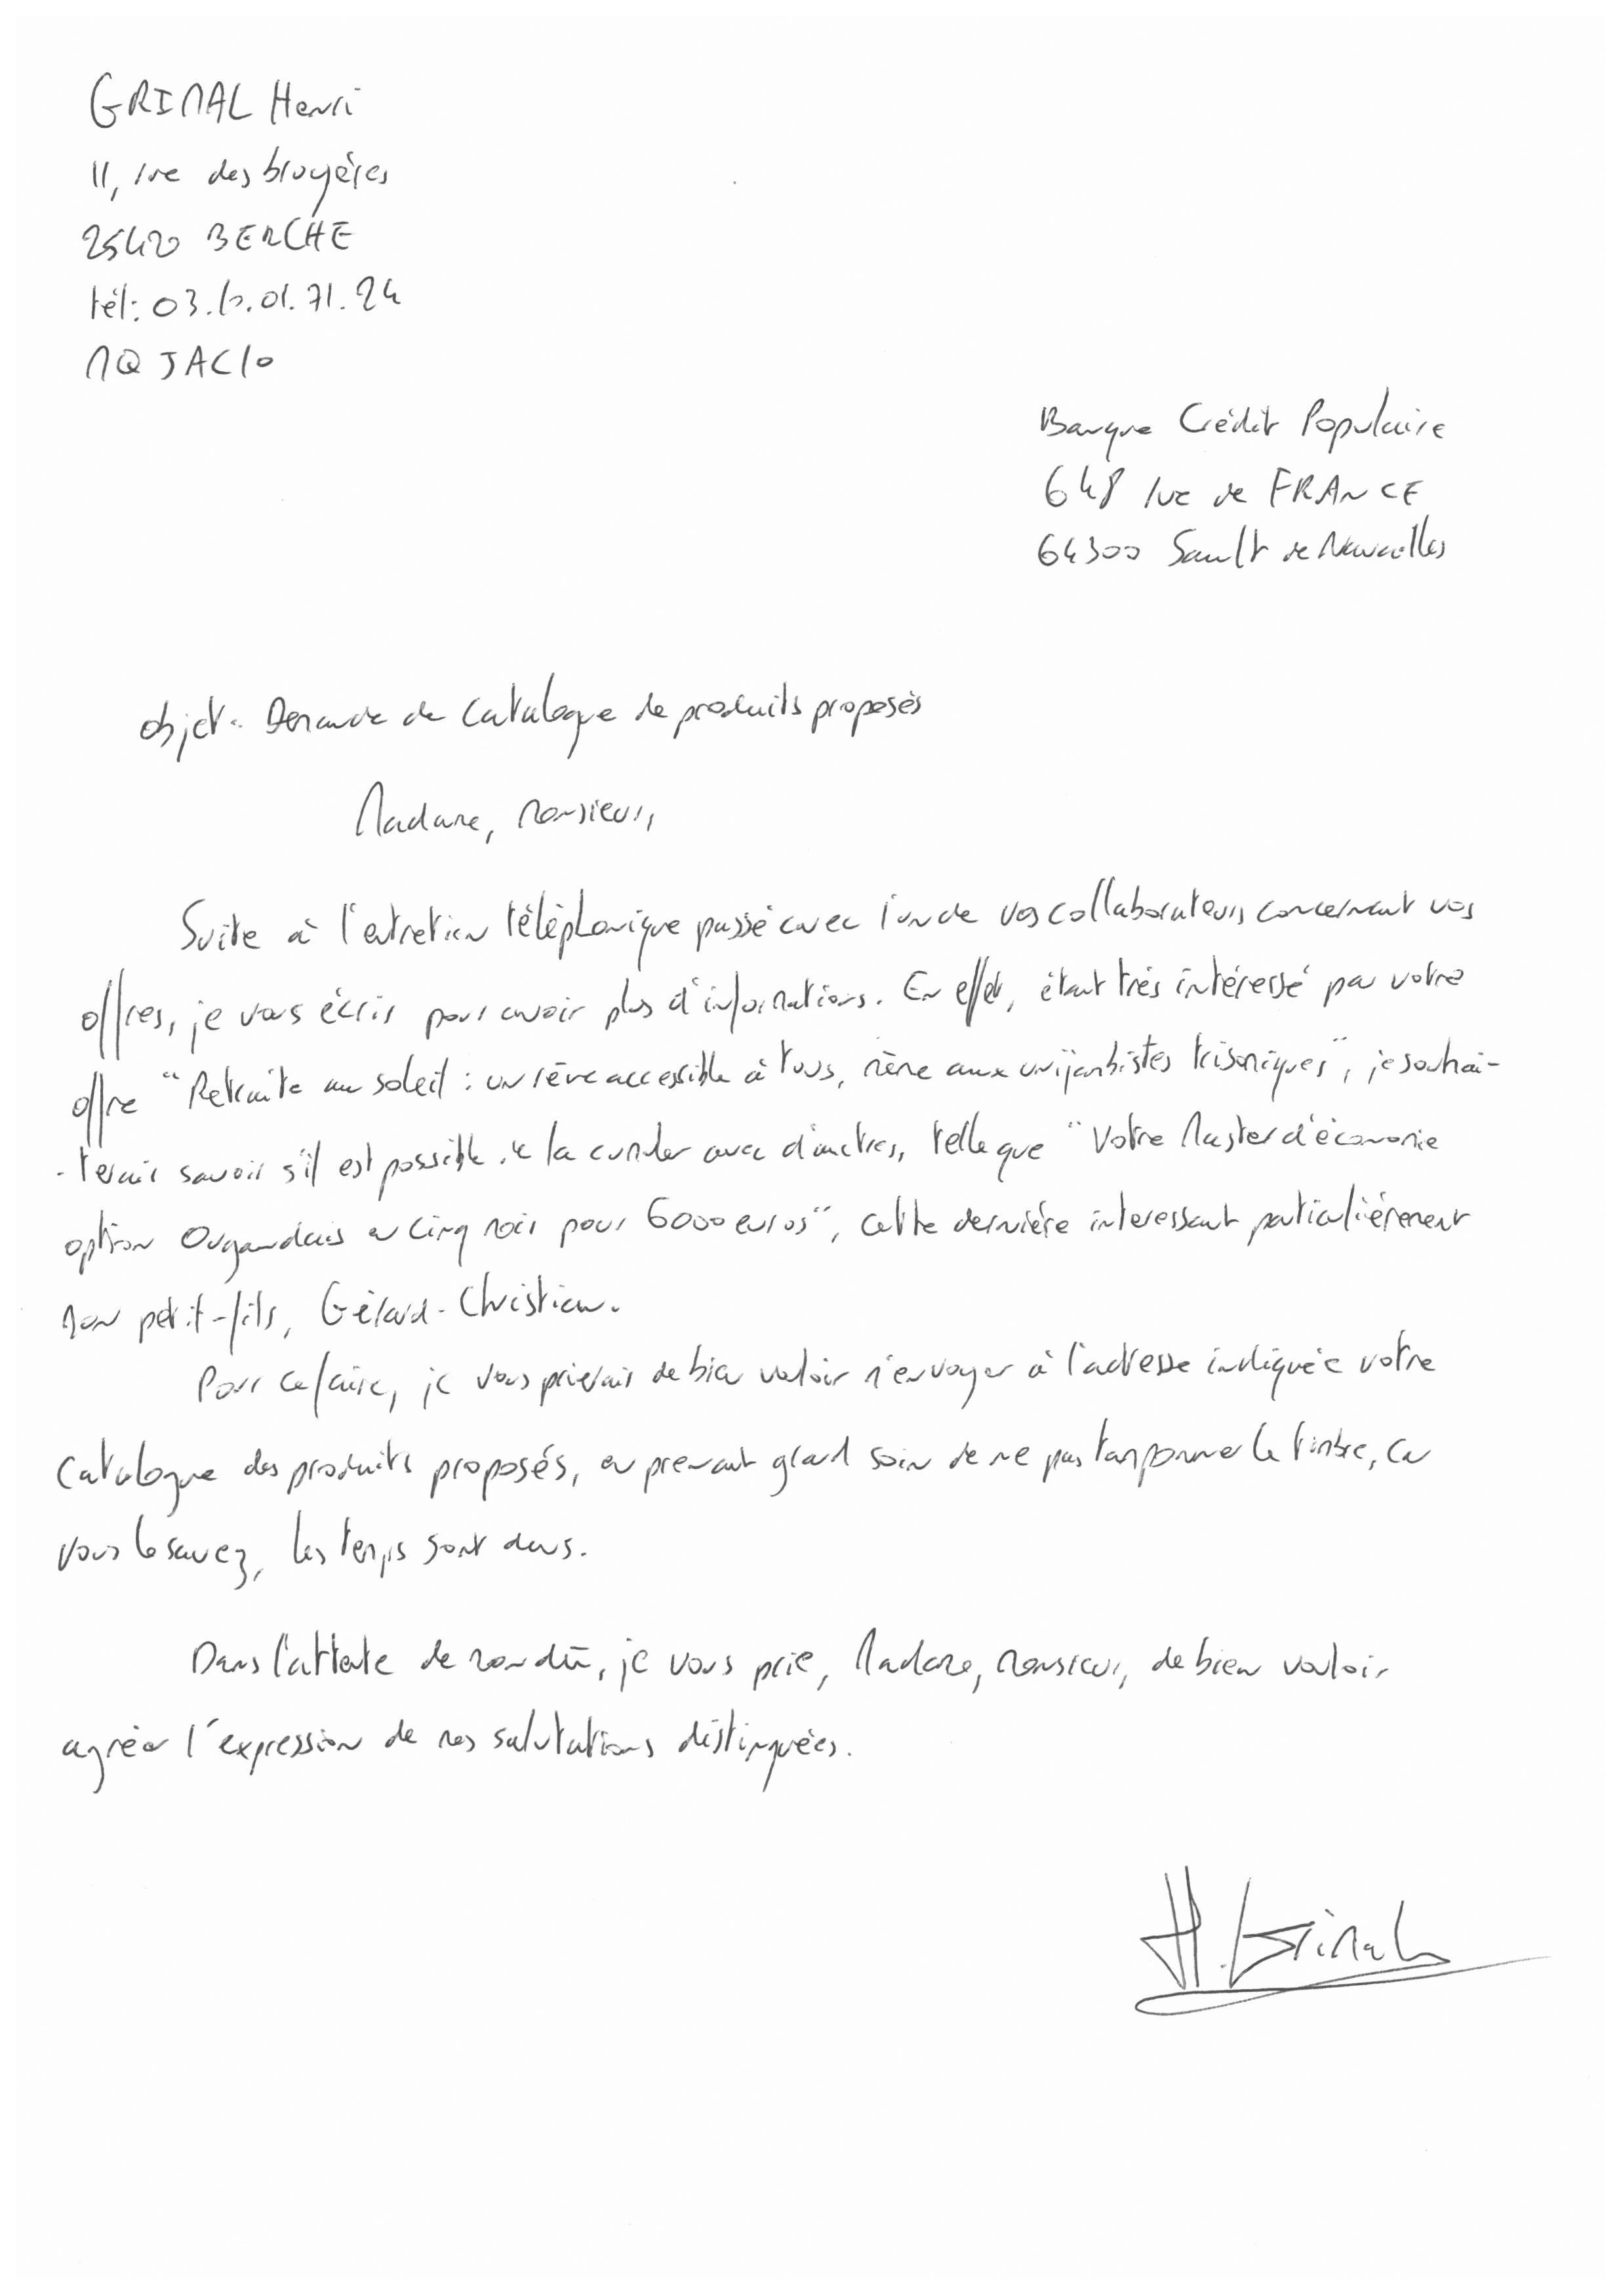 GRIMAL Henri
11, rue des bruyères
25420 BERCHE
tél: 03.60.01.71.24
MQJAC10
Banque Crédit Populaire
648 rue de FRANCE
64300 Sault de Navailles
objet: Demande de catalogue de produits proposés
Madame, Monsieur,
Suite à l'entretien téléphonique passé avec l'un de vos collaborateurs concernant vos
offres, je vous écris pour avoir plus d'informations. En effet, étant très intéressé par votre
offre "Retraite au soleil : un rêve accessible à tous, même aux unijambistes trisomiques", je souhai-
-terais savoir s'il est possible de la cumuler avec d'autres, telle que "Votre Master d'économie
option Ougandais en cinq mois pour 6000 euros", cette dernière interessant particulièrement
mon petit-fils, Gérard-Christian.
Pour ce faire, je vous prierais de bien vouloir m'envoyer à l'adresse indiquée votre
catalogue des produits proposés, en prenant grand soin de ne pas tamponner le timbre, car
vous le savez, les temps sont durs.
Dans l'attente de mon dû, je vous prie, Madame, Monsieur, de bien vouloir
agréer l'expression de mes salutations distinguées.
H. Grimal